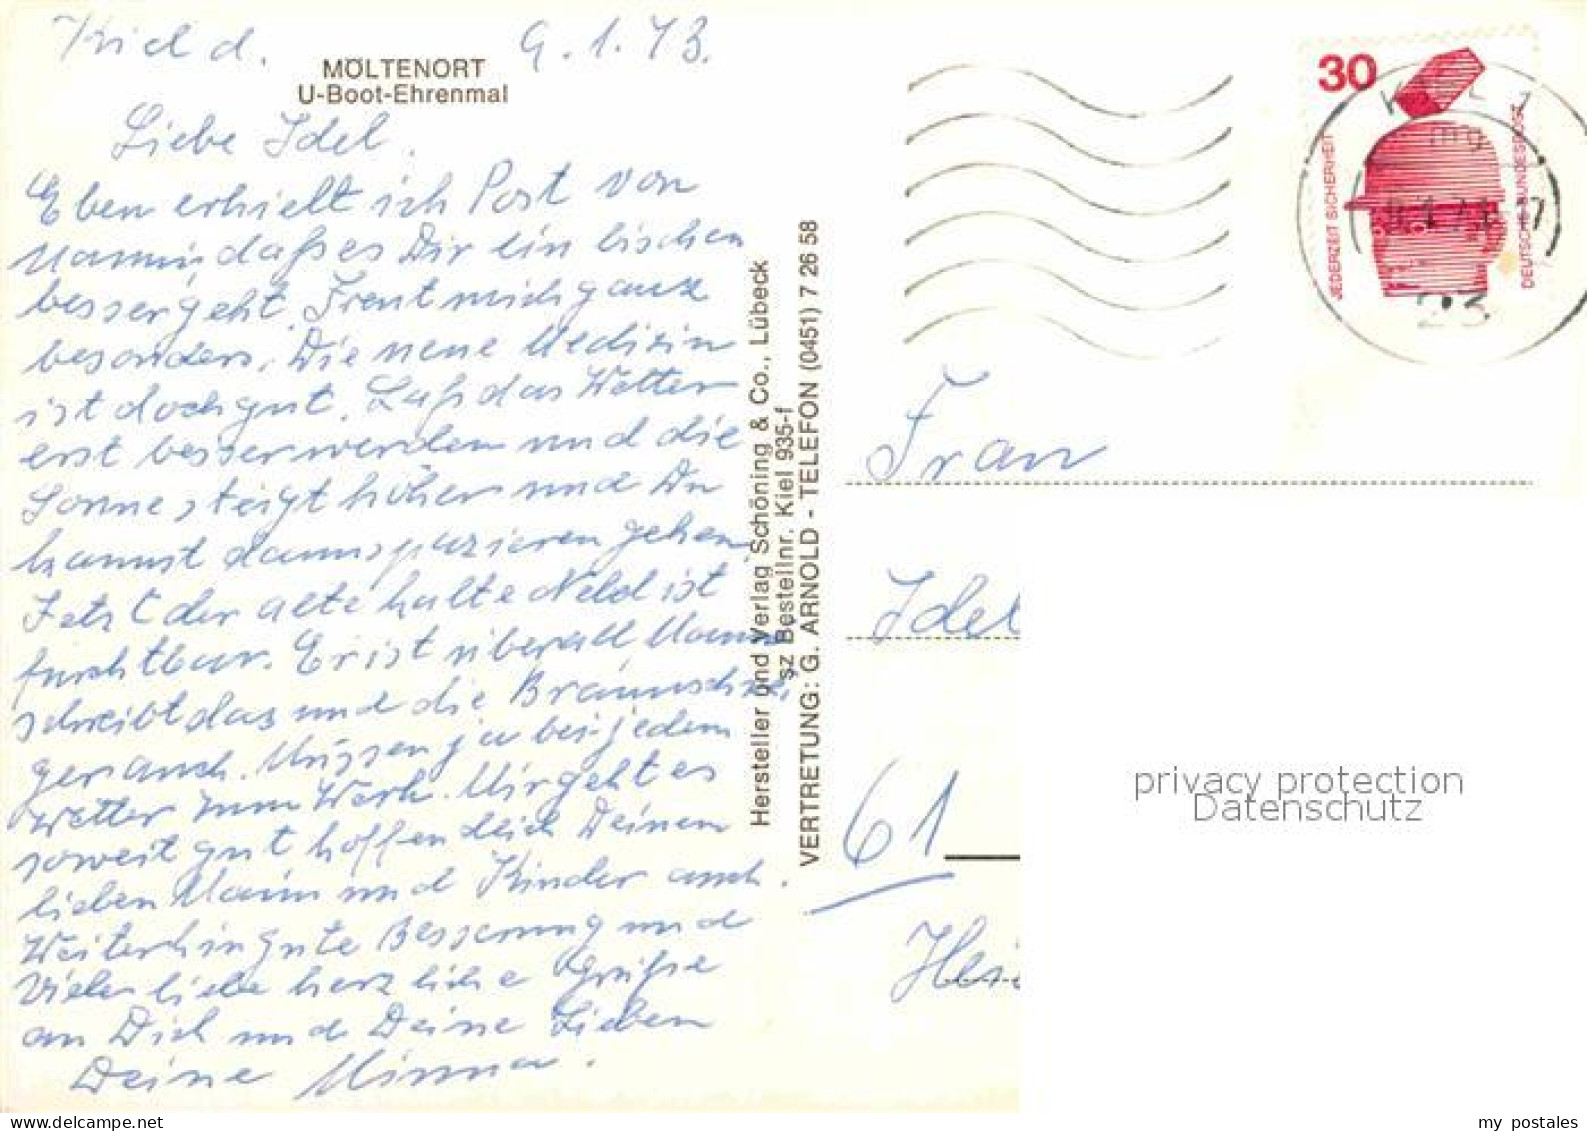 Kiel d. 9.1.73.
MÖLTENORT
U-Boot-Ehrenmal
Liebe Idel,
Eben erhielt ich Post von
Nanni, daß es Dir ein bischen
besser geht. Freut mich ganz
besonders. Die neue Medizin
ist doch gut. Laß das Wetter
erst besser werden und die
Sonne steigt höher und Du
kannst dann spazieren gehen.
Jetzt der alte kalte Nebel ist
furchtbar. Er ist überall Nanni
schreibt das und die Braunschwei
ger auch. Müssen ja bei jedem
Wetter zum Werk. Mir geht es
soweit gut hoffentlich Deinem
lieben Mann und Kinder auch.
Weiterhin gute Besserung und
viele liebe herzliche Grüße
an Dich und Deine Lieben
Deine Minna.
Hersteller und Verlag Schöning & Co., Lübeck
sz Bestellnr. Kiel 935-f
VERTRETUNG: G. ARNOLD - TELEFON (0451) 7 26 58
30
JEDERZEIT SICHERHEIT
DEUTSCHE BUNDESPOST
KIEL 1
mg
9.1.73-17
23
Frau
Idel
61
Hei
privacy protection
Datenschutz
my postales